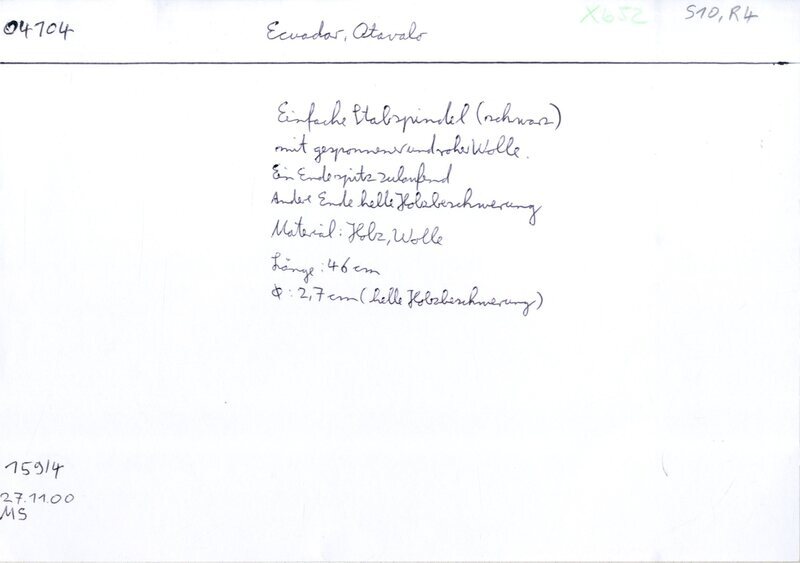 04104 Ecuador, Otavalo X652 S10, R4
Einfache Stabspindel (schwarz)
mit gesponnener und roher Wolle.
Ein Ende spitz zulaufend
Andere Ende helle Holzbeschwerung
Material: Holz, Wolle
Länge: 46 cm
Φ: 2,7 cm (helle Holzbeschwerung)
159/4
27.11.00
MS